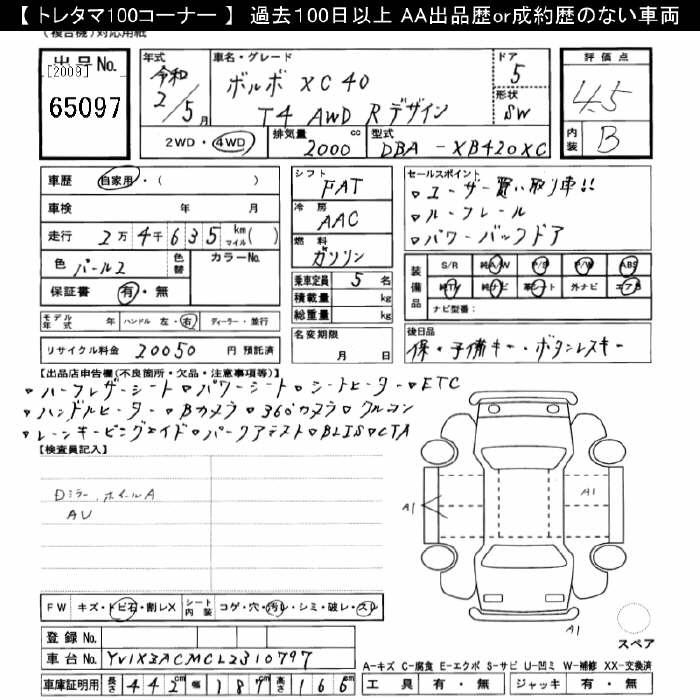 【 トレタマ100コーナー 】 過去100日以上 AA出品歴or成約歴のない車両
(複合機)対応用紙
出品No.
[2009]
65097
年式
令和
2/5月
車名・グレード
ボルボ XC40
T4 AWD Rデザイン
ドア
5
形状
SW
評価点
4.5
内装
B
2WD・4WD
排気量
2000 cc
型式
DBA-XB420XC
車歴 自家用・( )
車検 年 月
走行 2万4千635 km マイル( )
色 パール2 色替 カラーNo.
保証書 有・無
モデル年式 年 ハンドル 左・右 ディーラー・並行
リサイクル料金 20050 円 預託済
シフト
FAT
冷房
AAC
燃料
ガソリン
乗車定員 5 名
積載量 kg
総重量 kg
名変期限
月 日
セールスポイント
ユーザー買い取り車!!
ルーフレール
パワーバックドア
装備品
S/R 純A/W P/S P/W ABS
純TV 純ナビ 革シート 外ナビ エアB
ナビ型番:
後日品
保・予備キー・ボタンレスキー
【出品店申告欄(不良箇所・欠品・注意事項等)】
ハーフレザーシート パワーシート シートヒーター ETC
ハンドルヒーター Bカメラ 360°カメラ クルコン
レーンキーピングエイド パークアシスト BLIS CTA
【検査員記入】
Dミラー、ホイールA
AU
A1
A1
A1
スペア
FW キズ・トビ石・割レX シート内装 コゲ・穴・汚レ・シミ・破レ・スレ
登録No.
車台No. YV1XZACMCL2310797
車庫証明用 長さ 442 幅 187 高さ 166
A-キズ C-腐食 E-エクボ S-サビ U-凹ミ W-補修 XX-交換済
工具 有・無 ジャッキ 有・無